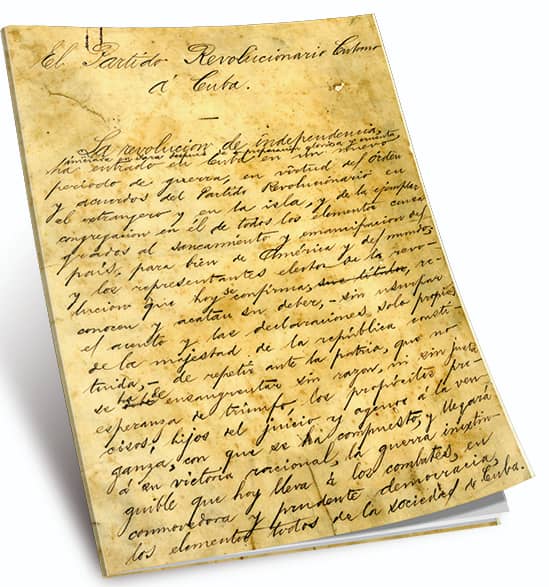 El Partido Revolucionario Cubano
á Cuba.
La revolucion de independencia,
iniciada en Yara despues de preparacion gloriosa y cruenta,
ha entrado en Cuba en un nuevo
periodo de guerra, en virtud del órden
y acuerdos del Partido Revolucionario en
el extrangero y en la isla, y de la ejemplar
congregacion en él de todos los elementos consa-
grados al saneamiento y emancipacion del
pais, para bien de América y del mundo;
y los representantes electos de la revo-
lucion que hoy se confirma, re-
conocen y acatan su deber,-sin usurpar
el acento y las declaraciones solo propias
de la majestad de la república consti-
tuida,-de repetir ante la patria, que no
se ha de ensangrentar sin razon, ni sin justa
esperanza de triunfo, los propósitos pre-
cisos, hijos del juicio y agenos á la ven-
ganza, con que se ha compuesto, y llegará
á su victoria racional, la guerra inextin-
guible que hoy lleva á los combates, en
conmovedora y prudente democracia,
los elementos todos de la sociedad de Cuba.